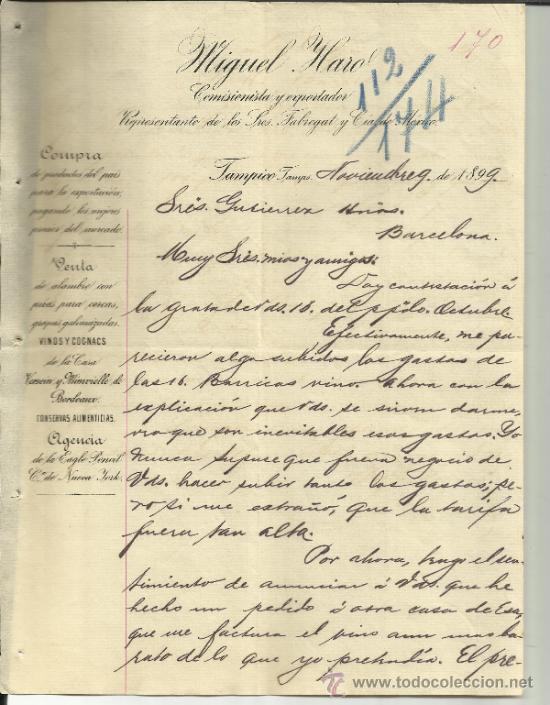 170
Miguel Haro
112/144
Comisionista y exportador
Representante de los Sres. Fabregat y Cia de Mexico.
Tampico Tamps. Noviembre 9 de 1899.
Compra
de productos del pais
para la exportación,
pagando los mejores
precios del mercado.
Venta
de alambre con
puas para cercas,
grapas galvanizadas.
VINOS Y COGNACS
de la Casa
y Minvielle de
Bordeaux.
CONSERVAS ALIMENTICIAS.
Agencia
de la Eagle Pencil
Cº de Nueva York.
Srés. Gutierrez Hnos.
Barcelona.
Muy Srés. mios y amigos:
Doy contestación á
la grata de Vds. 16. del ppdo. Octubre.
Efectivamente, me pa-
recieron algo subidos los gastos de
las 16. Barricas vino. Ahora con la
explicación que Vds. se sirven darme,
veo que son inevitables esos gastos. Yo
nunca supuse que fuera negocio de
Vds. hacer subir tanto los gastos, pe-
ro si me extrañó, que la tarifa
fuera tan alta.
Por ahora, tengo el sen-
timiento de anunciar á Vds. que he
hecho un pedido á otra casa de Esa,
que me factura el vino aun mas ba-
rato de lo que yo pretendia. El pre-
todocoleccion
www.todocoleccion.net